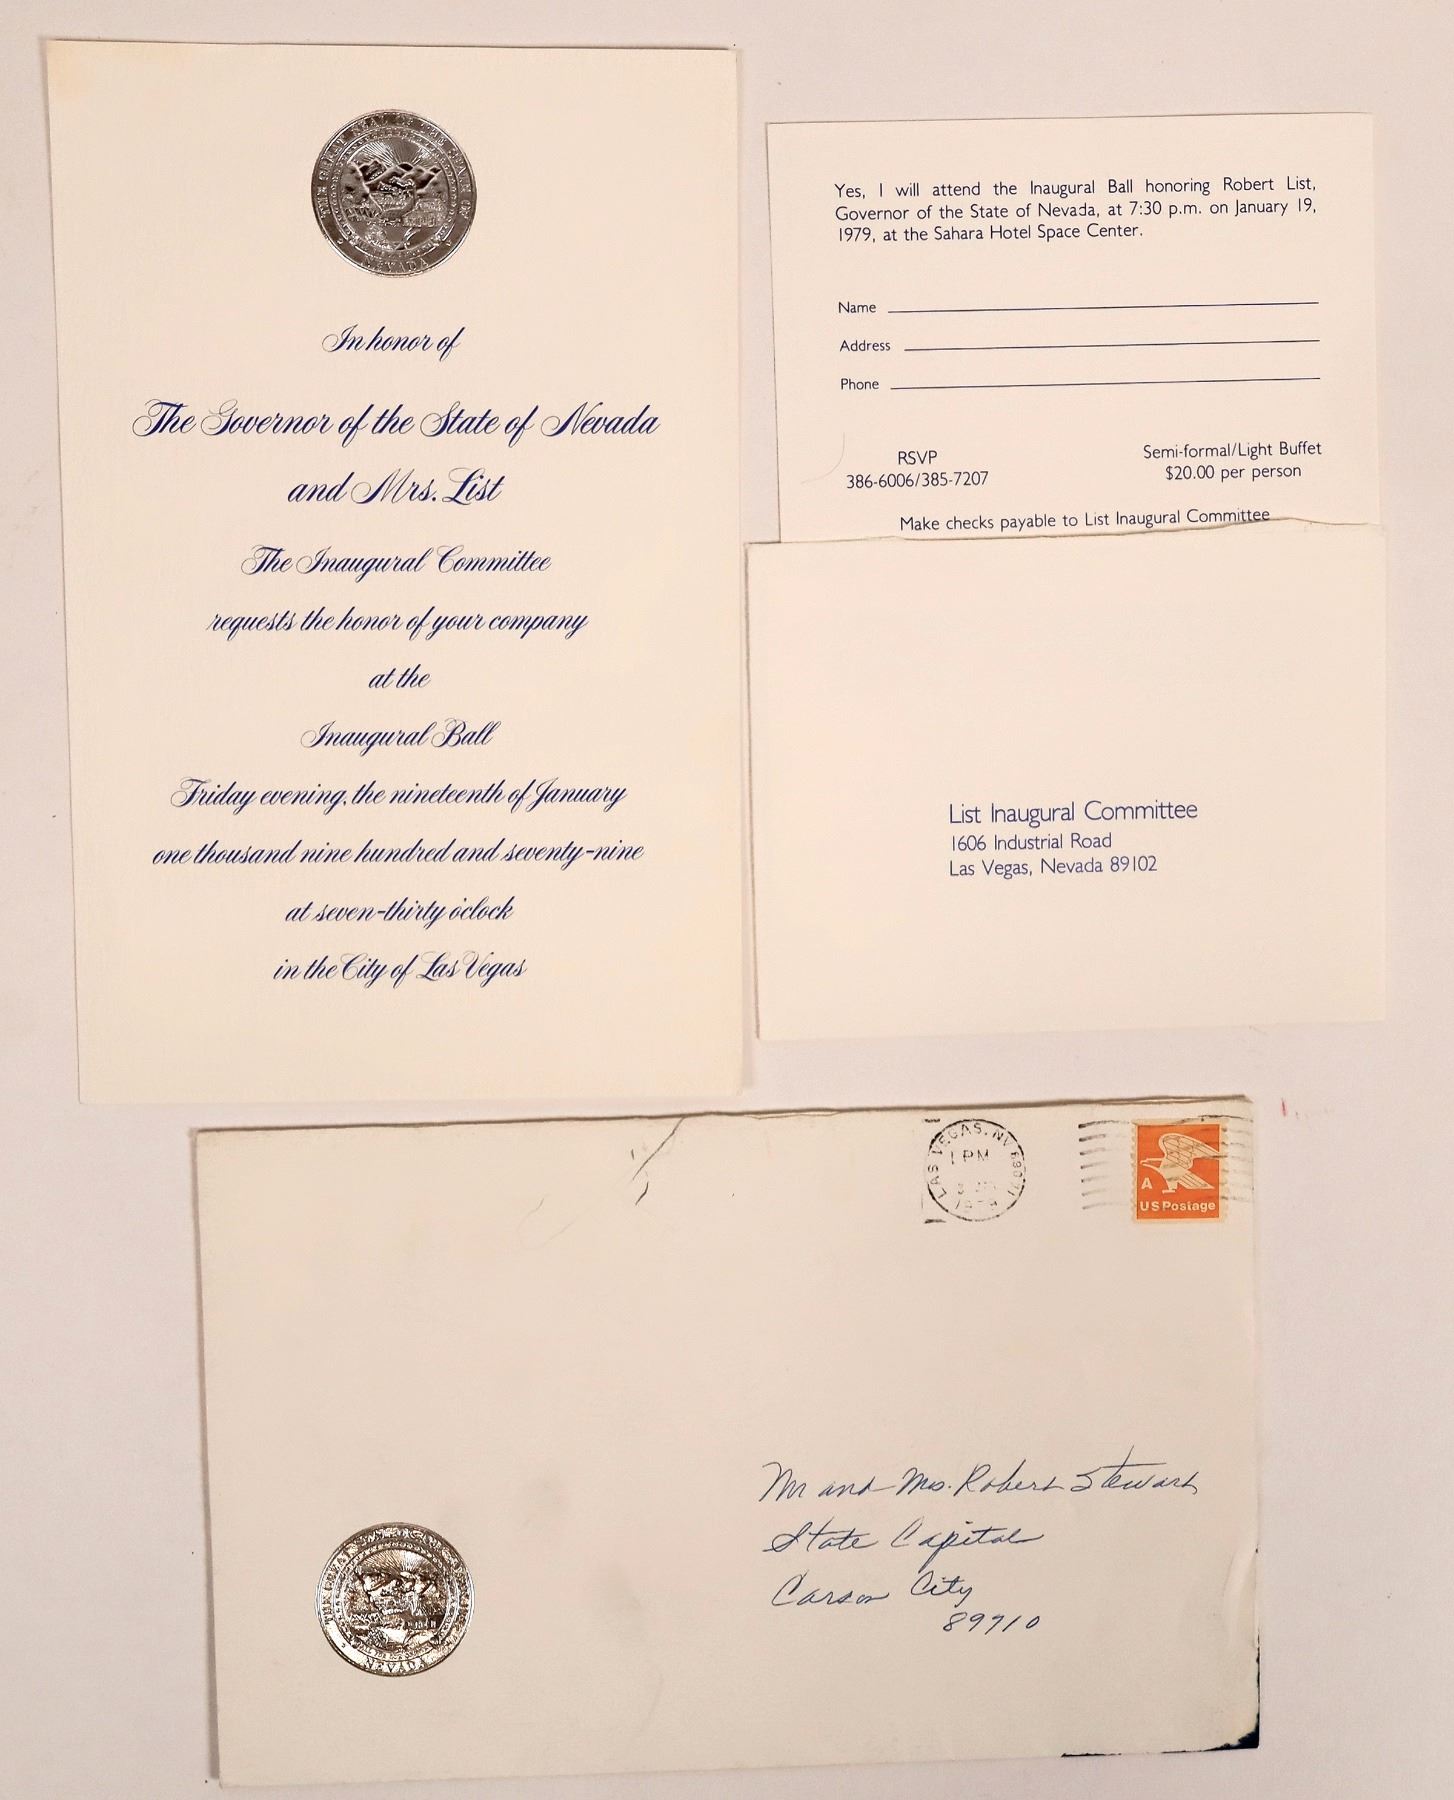 THE GREAT SEAL OF THE STATE OF
NEVADA
In honor of
The Governor of the State of Nevada
and Mrs. List
The Inaugural Committee
requests the honor of your company
at the
Inaugural Ball
Friday evening, the nineteenth of January
one thousand nine hundred and seventy-nine
at seven-thirty o'clock
in the City of Las Vegas
Yes, I will attend the Inaugural Ball honoring Robert List,
Governor of the State of Nevada, at 7:30 p.m. on January 19,
1979, at the Sahara Hotel Space Center.
Name
Address
Phone
RSVP
386-6006/385-7207
Semi-formal/Light Buffet
$20.00 per person
Make checks payable to List Inaugural Committee
List Inaugural Committee
1606 Industrial Road
Las Vegas, Nevada 89102
LAS VEGAS, NV
1 PM
A
US Postage
Mr and Mrs. Robert Stewart
State Capital
Carson City
89710
THE GREAT SEAL OF THE STATE OF
NEVADA